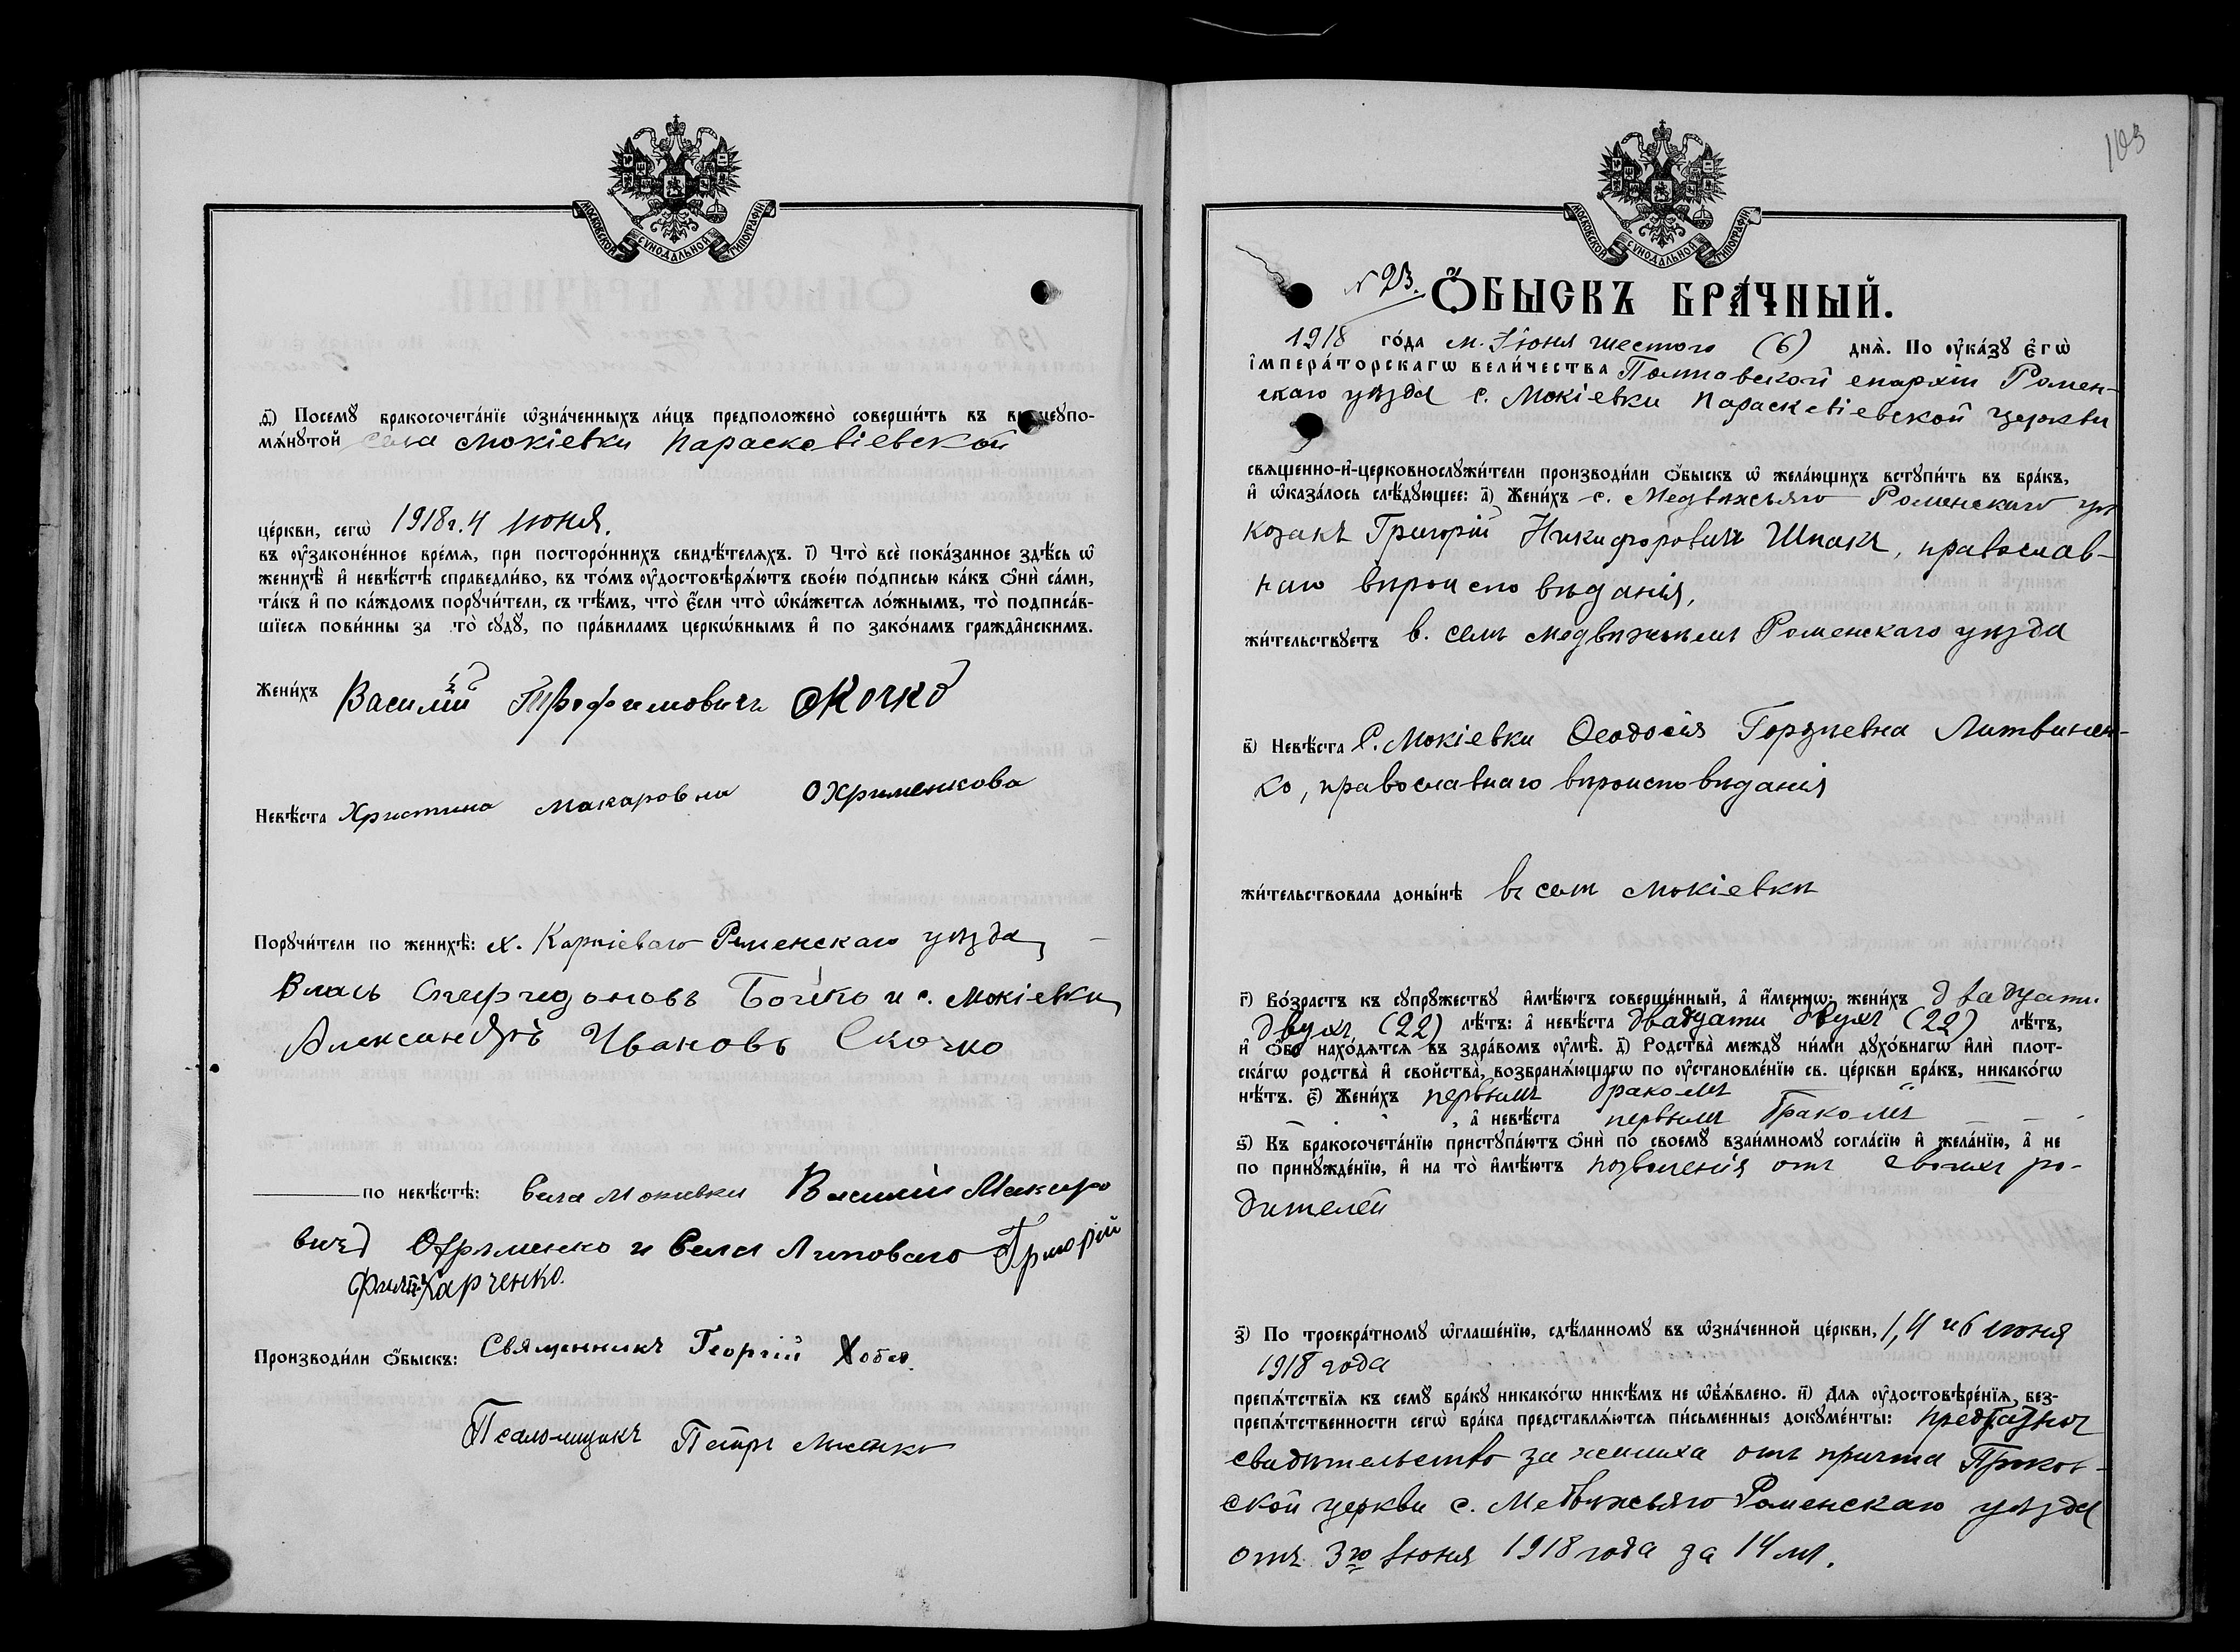 МОСКОВСКОЙ СУНОДАЛЬНОЙ ТИПОГРАФІИ
д҃) Посемꙋ бракосочета́нїе ѡ҆зна́ченныхъ ли́цъ предположено̀ соверши́ть въ вышеупо-
мѧ́нꙋтой села Мокіевки Параскевіевской
це́ркви, сегѡ̀ 1918 г. 4 июня.
въ ᲂу҆законе́нное вре́мѧ, при посторо́ннихъ свидѣ́телѧхъ. і҃) Что̀ всѐ пока́занное здѣ́сь ѡ҆
женихѣ̀ и҆ невѣ́стѣ справедли́во, въ то́мъ ᲂу҆достовѣрѧ́ютъ свое́ю по́дписью ка́къ ѻ҆нѝ са́ми,
та́къ и҆ по ка́ждомъ порꙋчи́тели, съ тѣ́мъ, что̀ є҆́сли что̀ ѡ҆ка́жетсѧ ло́жнымъ, то̀ подписа́в-
шїесѧ пови́нны за то̀ сꙋдꙋ̀, по пра́виламъ церкѡ́внымъ и҆ по зако́намъ гражда̑нскимъ.
Жени́хъ Василій Трофимовичъ Скочко
Невѣ́ста Христина Макаровна Охрименкова
Порꙋчи́тели по женихѣ̀: х. Карпіеваго Роменскаго уѣзда,
Власъ Спиридоновъ Бойко и с. Мокіевки
Александръ Ивановъ Скочко
по невѣ́стѣ: села Мокиевки Василий Макаро
вичъ Охрименко и села Липоваго Григорій
Харченко.
Производи́ли ѻ҆́быскъ: Священникъ Георгій
Псаломщикъ Петръ
103
МОСКОВСКОЙ СУНОДАЛЬНОЙ ТИПОГРАФІИ
N 23. Ѻ҆́БЫСКЪ БРА́ЧНЫЙ.
1918 го́да м. Іюня шестого (6) днѧ̀. По ᲂу҆ка́зꙋ є҆гѡ̀
і҆мпера́торскагѡ вели́чества Полтавской епархіи Ромен-
скаго уѣзда с. Мокіевки Параскевіевской церкви
свѧще́нно-и҆-церковнослꙋжи́тели производи́ли ѻ҆́быскъ ѡ҆ жела́ющихъ встꙋпи́ть въ бра́къ,
и҆ ѡ҆каза́лось слѣ́дꙋющее: а҃) Жени́хъ с. Медвѣжьяго Роменскаго уѣз
козакъ Григорій Никифоровичъ Шпакъ, православ-
наго вѣроисповѣданія,
жи́тельствꙋетъ в. селѣ Медвѣжьемъ Роменскаго уѣзда
в҃) Невѣ́ста С. Мокіевки Ѳеодосія Гордѣевна Литвинен-
ко, православнаго вѣроисповѣданія
жи́тельствовала доны́нѣ въ селѣ Мокіевкѣ
г҃) Во́зрастъ къ сꙋпрꙋ́жествꙋ и҆мѣ́ютъ соверше́нный, а҆ и҆́меннѡ: жени́хъ двадцати
двухъ (22) лѣ́тъ: а҆ невѣ́ста двадцати двухъ (22) лѣ́тъ,
и҆ ѻ҆́ба нахо́дѧтсѧ въ здра́вомъ ᲂу҆мѣ̀. д҃) Родства̀ междꙋ̀ ни́ми дꙋхо́внагѡ и҆лѝ плот-
ска́гѡ родства̀ и҆ свойства̀, возбранѧ́ющагѡ по ᲂу҆становле́нїю св. це́ркви бра́къ, никако́гѡ
нѣ́тъ. є҃) Жени́хъ первымъ бракомъ
, а҆ невѣ́ста первымъ бракомъ
ѕ҃) Къ бракосочета́нїю пристꙋпа́ютъ ѻ҆нѝ по своемꙋ̀ взаи́мномꙋ согла́сїю и҆ жела́нїю, а҆ не
по принꙋжде́нїю, и҆ на то̀ и҆мѣ́ютъ позволенія отъ своихъ ро-
дителей
з҃) По троекра́тномꙋ ѡ҆глаше́нїю, сдѣ́ланномꙋ въ ѡ҆зна́ченной це́ркви, 1, 4 и 6 июня
1918 года
препѧ́тствїѧ къ семꙋ̀ бра́кꙋ никако́гѡ никѣ́мъ не ѡ҆б̾ѧ́влено. и҃) Длѧ ᲂу҆достовѣре́нїѧ, без-
препѧ́тственности сегѡ̀ бра́ка представлѧ́ютсѧ пи́сьменные докꙋме́нты: предбрачное
свидѣтельство за жениха отъ причта Проков-
ской церкви с. Медвѣжьяго Роменскаго уѣзда
отъ 3го Іюня 1918 года за 14 №.